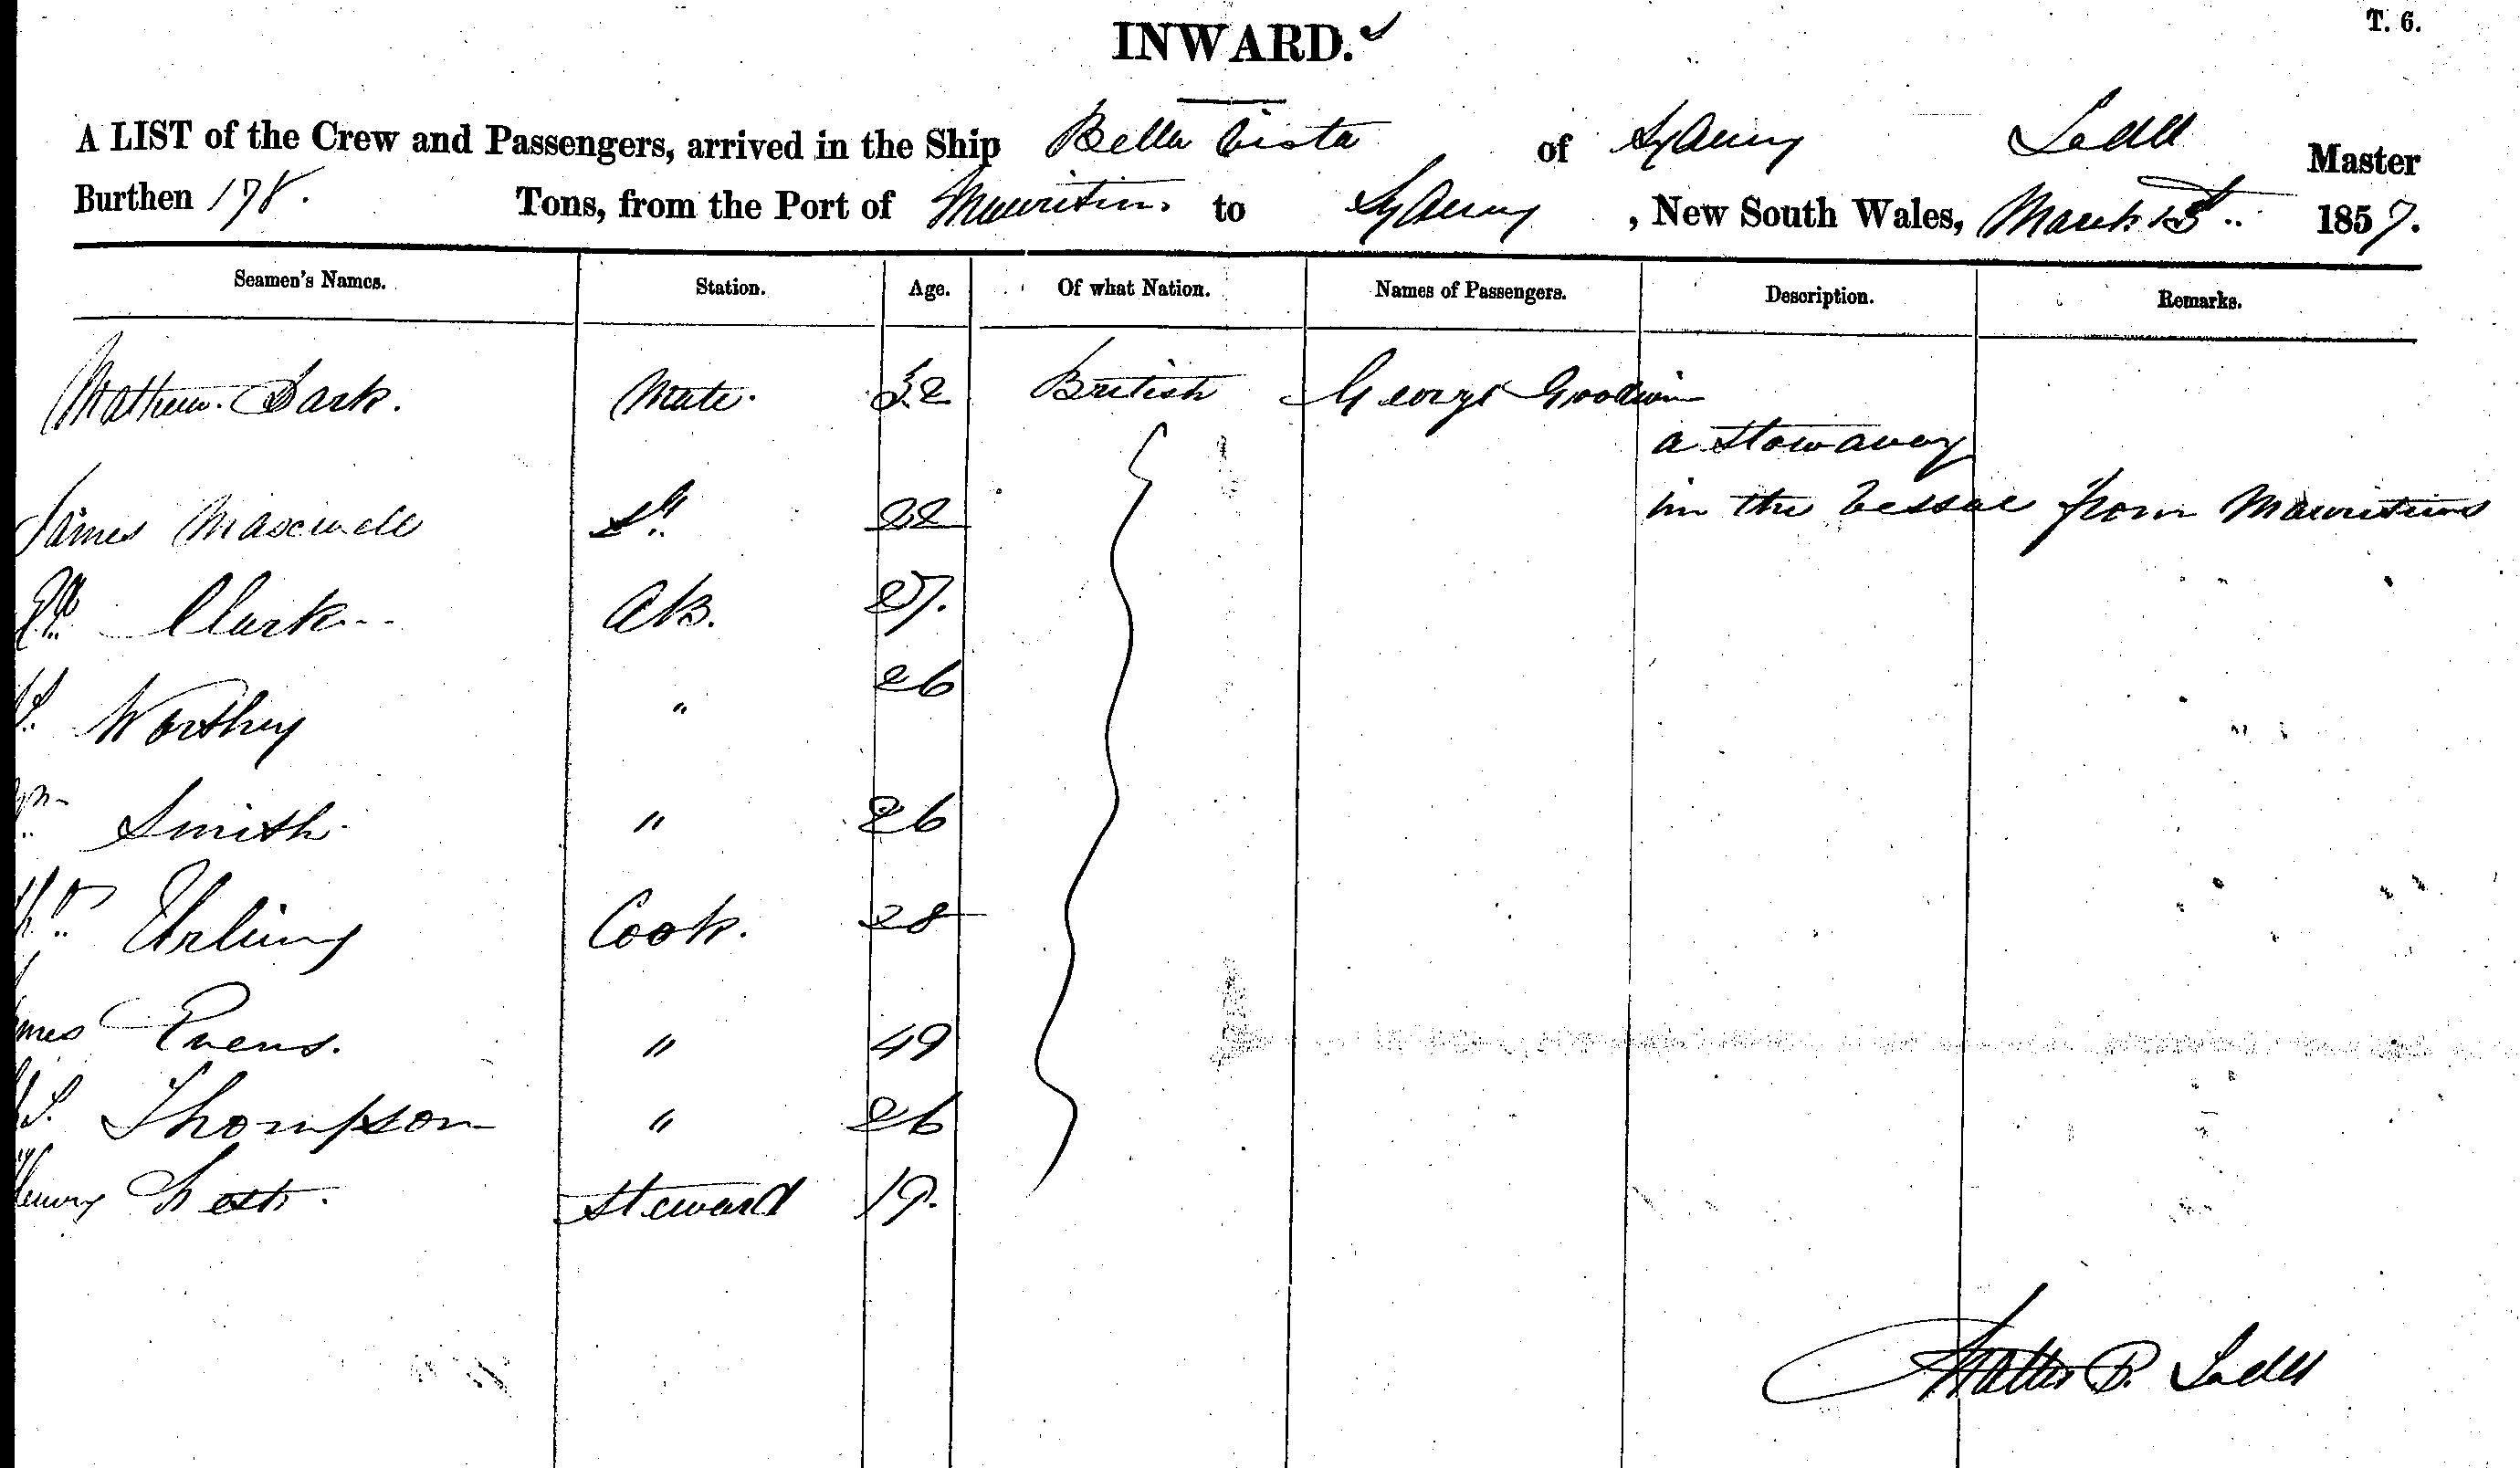 T. 6.
INWARD.
A LIST of the Crew and Passengers, arrived in the Ship Bella Vista of Sydney Ledell Master
Burthen 178. Tons, from the Port of Mauritius to Sydney, New South Wales, March 13th 1857.
Seamen's Names. Station. Age. Of what Nation. Names of Passengers. Description. Remarks.
Mathew Dark. Mate. 32 British George Goodwin
a Stowaway
James 22 in the Vessel from Mauritius
Clark AB. 27.
Worthy " 26
Smith " 26
Urling Cook. 28
Evens. " 49
Thompson " 26
Henry Steward 19.
Walter B.